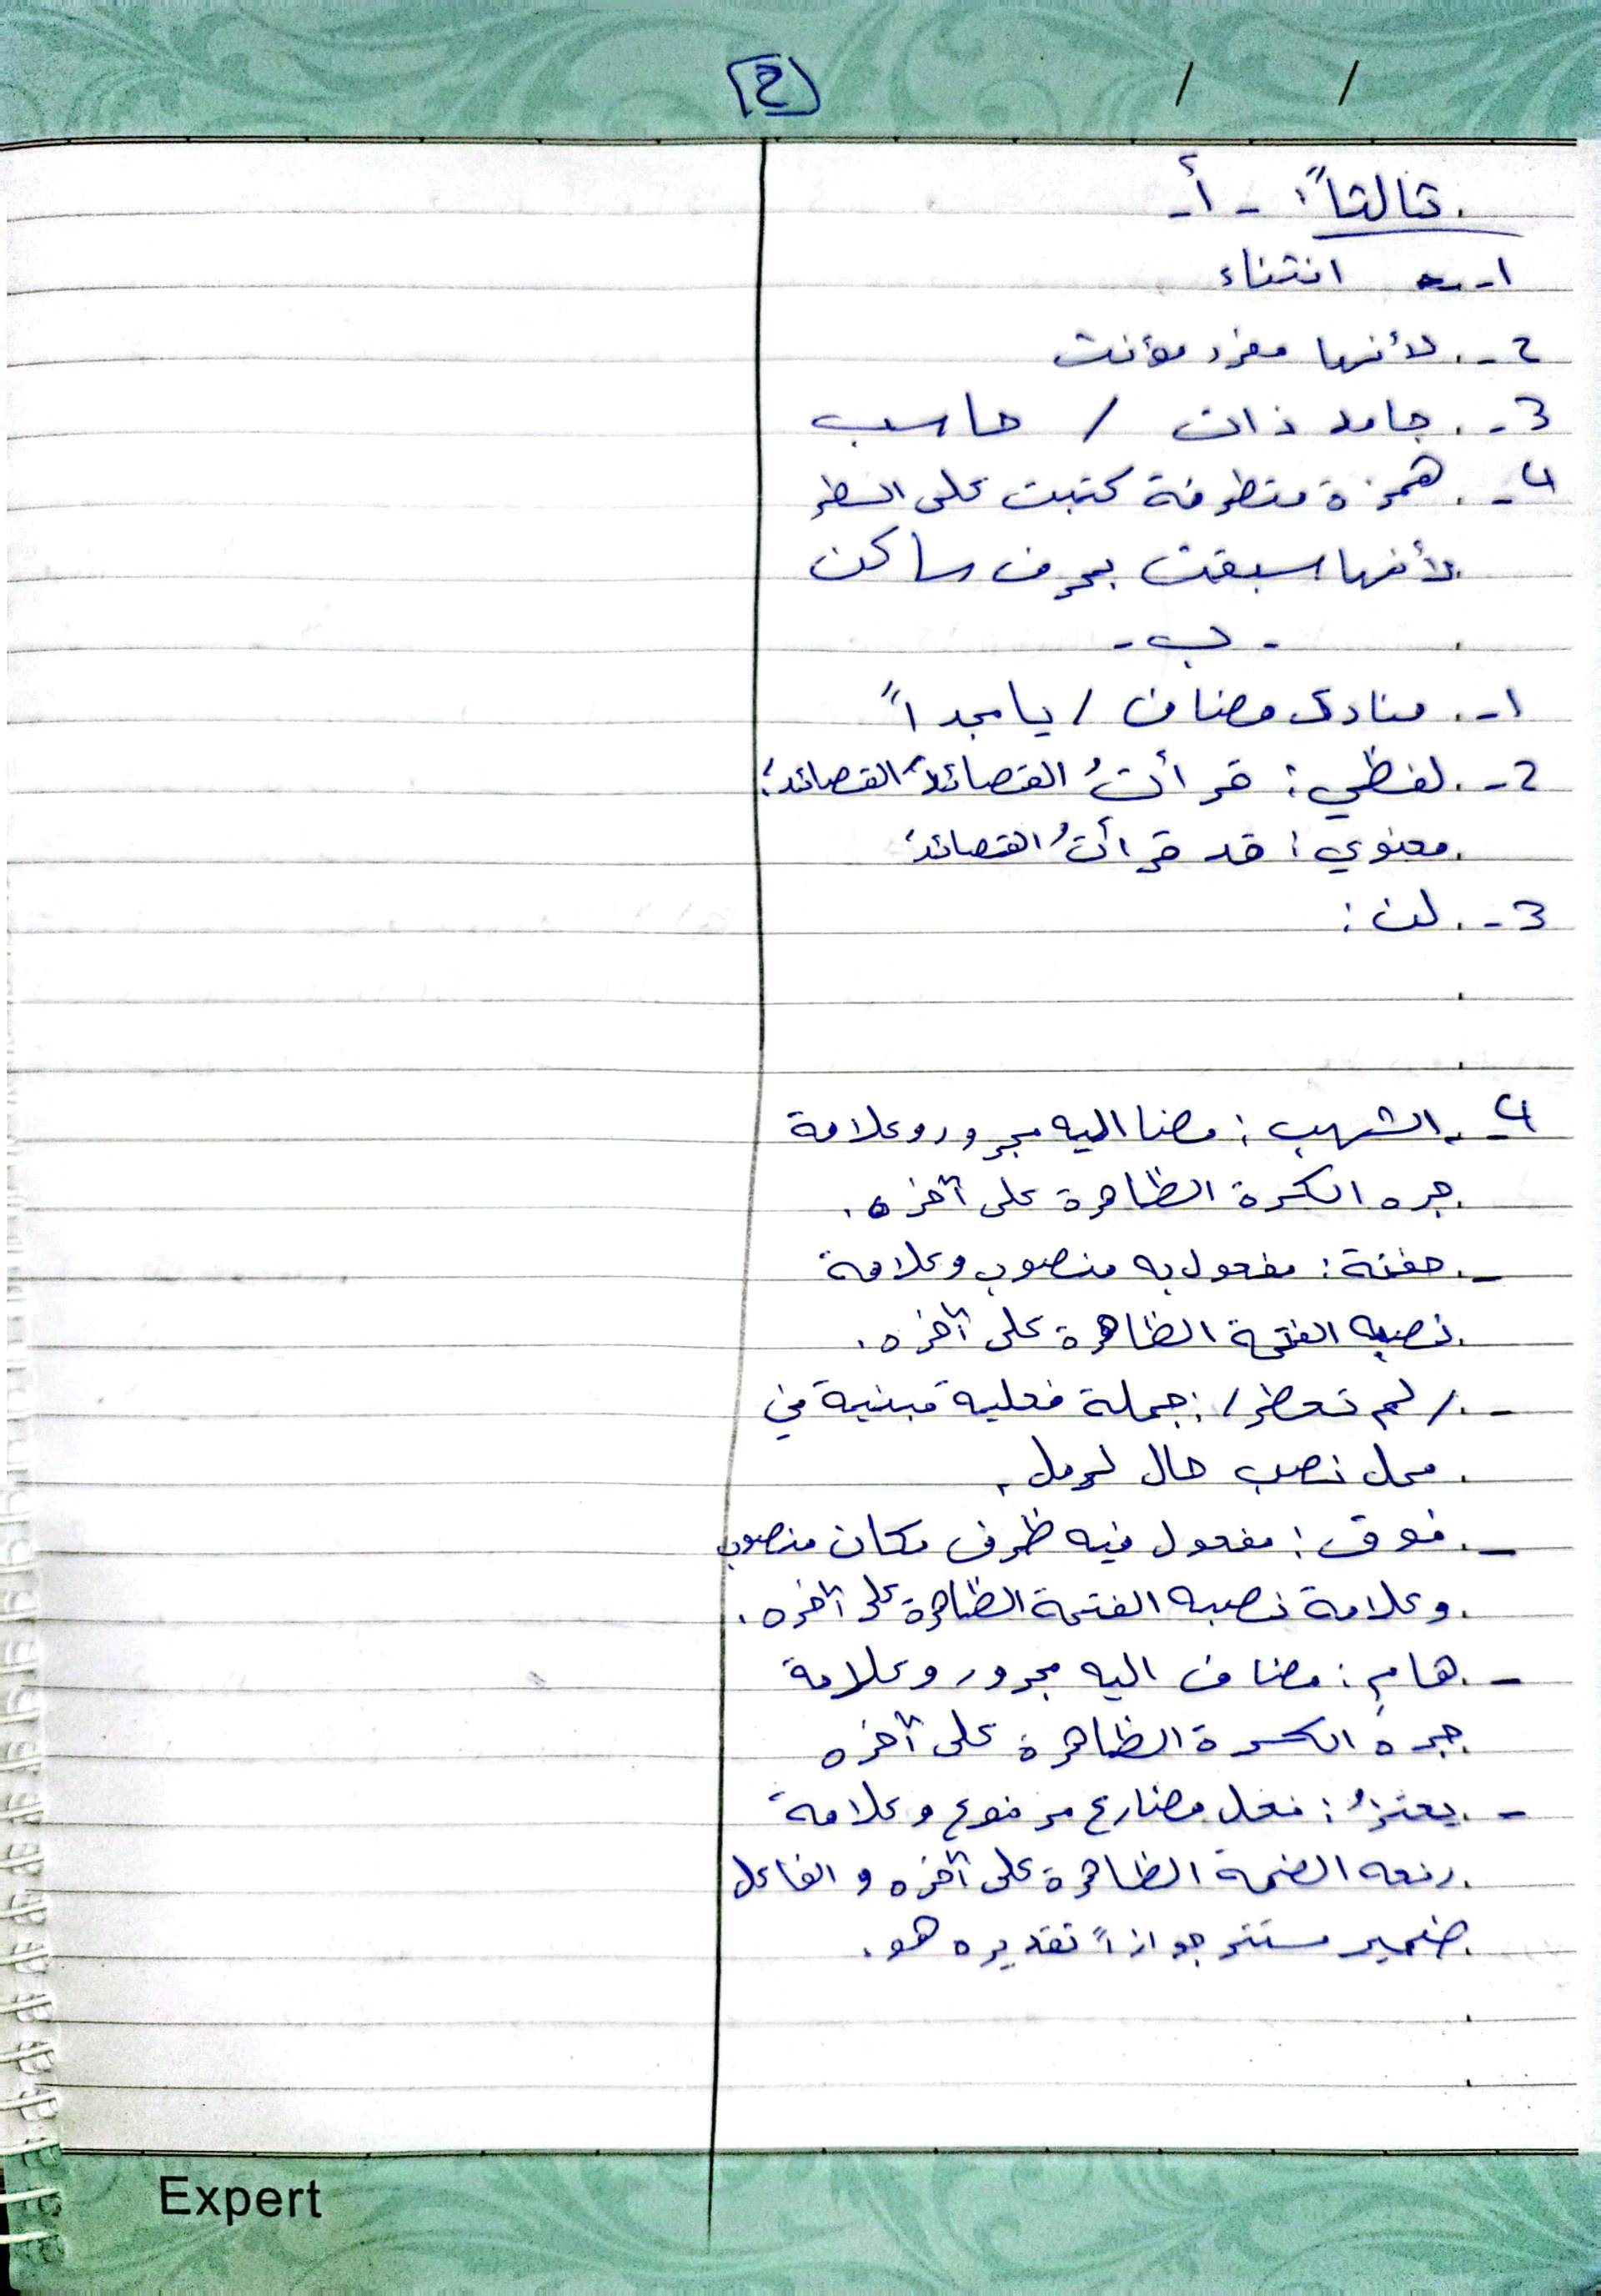 2
/ /
ثالثاً: - أ -
1- انتشاء
2- لأنها مفرد مؤنث
3- جامد ذات / حاسب
4- همزة متطرفة كتبت على السطر
لأنها سبقت بحرف ساكن
- ب -
1- منادى مضاف / يا مجداً
2- لفظي: قرأتُ القصائدَ القصائدَ
معنوي: قد قرأتُ القصائدَ
3- لن:
4- الشهب: مضا اليه مجرور وعلامة
جره الكسرة الظاهرة على آخره.
- حفنة: مفعول به منصوب وعلامة
نصبه الفتحة الظاهرة على آخره.
- / لم تعطر /: جملة فعلية مبنية في
محل نصب حال لرمل.
- فوق: مفعول فيه ظرف مكان منصوب
وعلامة نصبه الفتحة الظاهرة على آخره.
- هامِ: مضاف اليه مجرور وعلامة
جره الكسرة الظاهرة على آخره
- يعتزُ: فعل مضارع مرفوع وعلامة
رفعه الضمة الظاهرة على آخره و الفاعل
ضمير مستتر جوازاً تقديره هو.
Expert